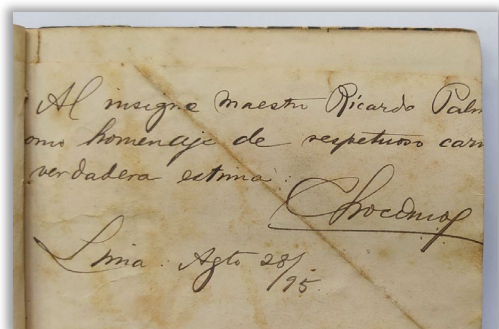 Al insigne maestro Ricardo Palm
omo homenaje de respetuoso cari
verdadera estima:
Lima. Agto 28/95